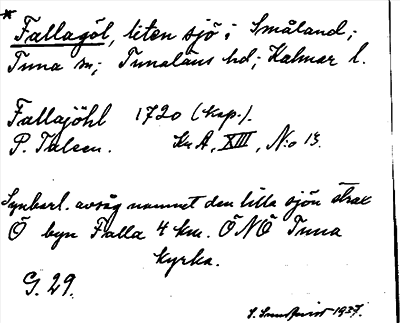 * Fallagöl, liten sjö i Småland;
Tuna sn; Tunaläns hd; Kalmar l.
Fallajöhl 1720 (kop.).
P. Talsen. KrA, XIII, N:o 13.
Synbarl. avsåg namnet den lilla sjön strax
Ö byn Falla 4 km. ÖNÖ Tuna
kyrka.
G. 29.
S. 1937.